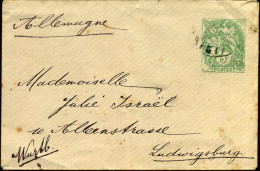 Allemagne
Mademoiselle
Julie Israël
10 Alleenstrasse
Ludwigsburg
Wurtb.